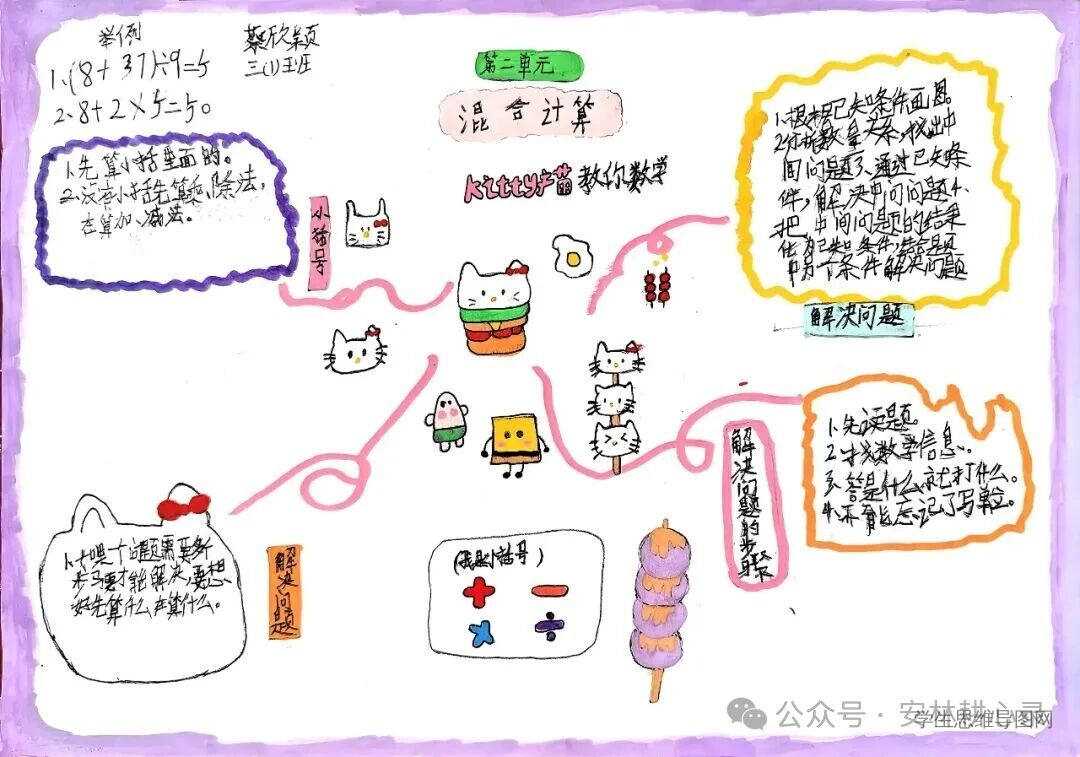 举例
1、(8+37)÷9=5
2、8+2×5=50
蔡欣颖
三(1)班
第二单元
混合计算
Kitty 教你数学
1、先算小括里面的。
2、没有小括先算乘除法,
在算加、减法。
小括号
1、根据已知条件画图。
2分析数量关系,找出中
间问题3、通过已知条
件,解决中间问题4、
把中间问题的结果
作为已知条件,结合题
中另一个条件解决问题
解决问题
解决问题的步骤
1、先读题。
2、找数学信息、
3、答是什么就打什么。
4、不能忘记了写单位。
1、十哭一个问题需要多
步马要才能解决,要想
好先算什么在算什么。
解决问题
(我是小括号)
+ −
× ÷
公众号·安林耕心录
学生思维导图网